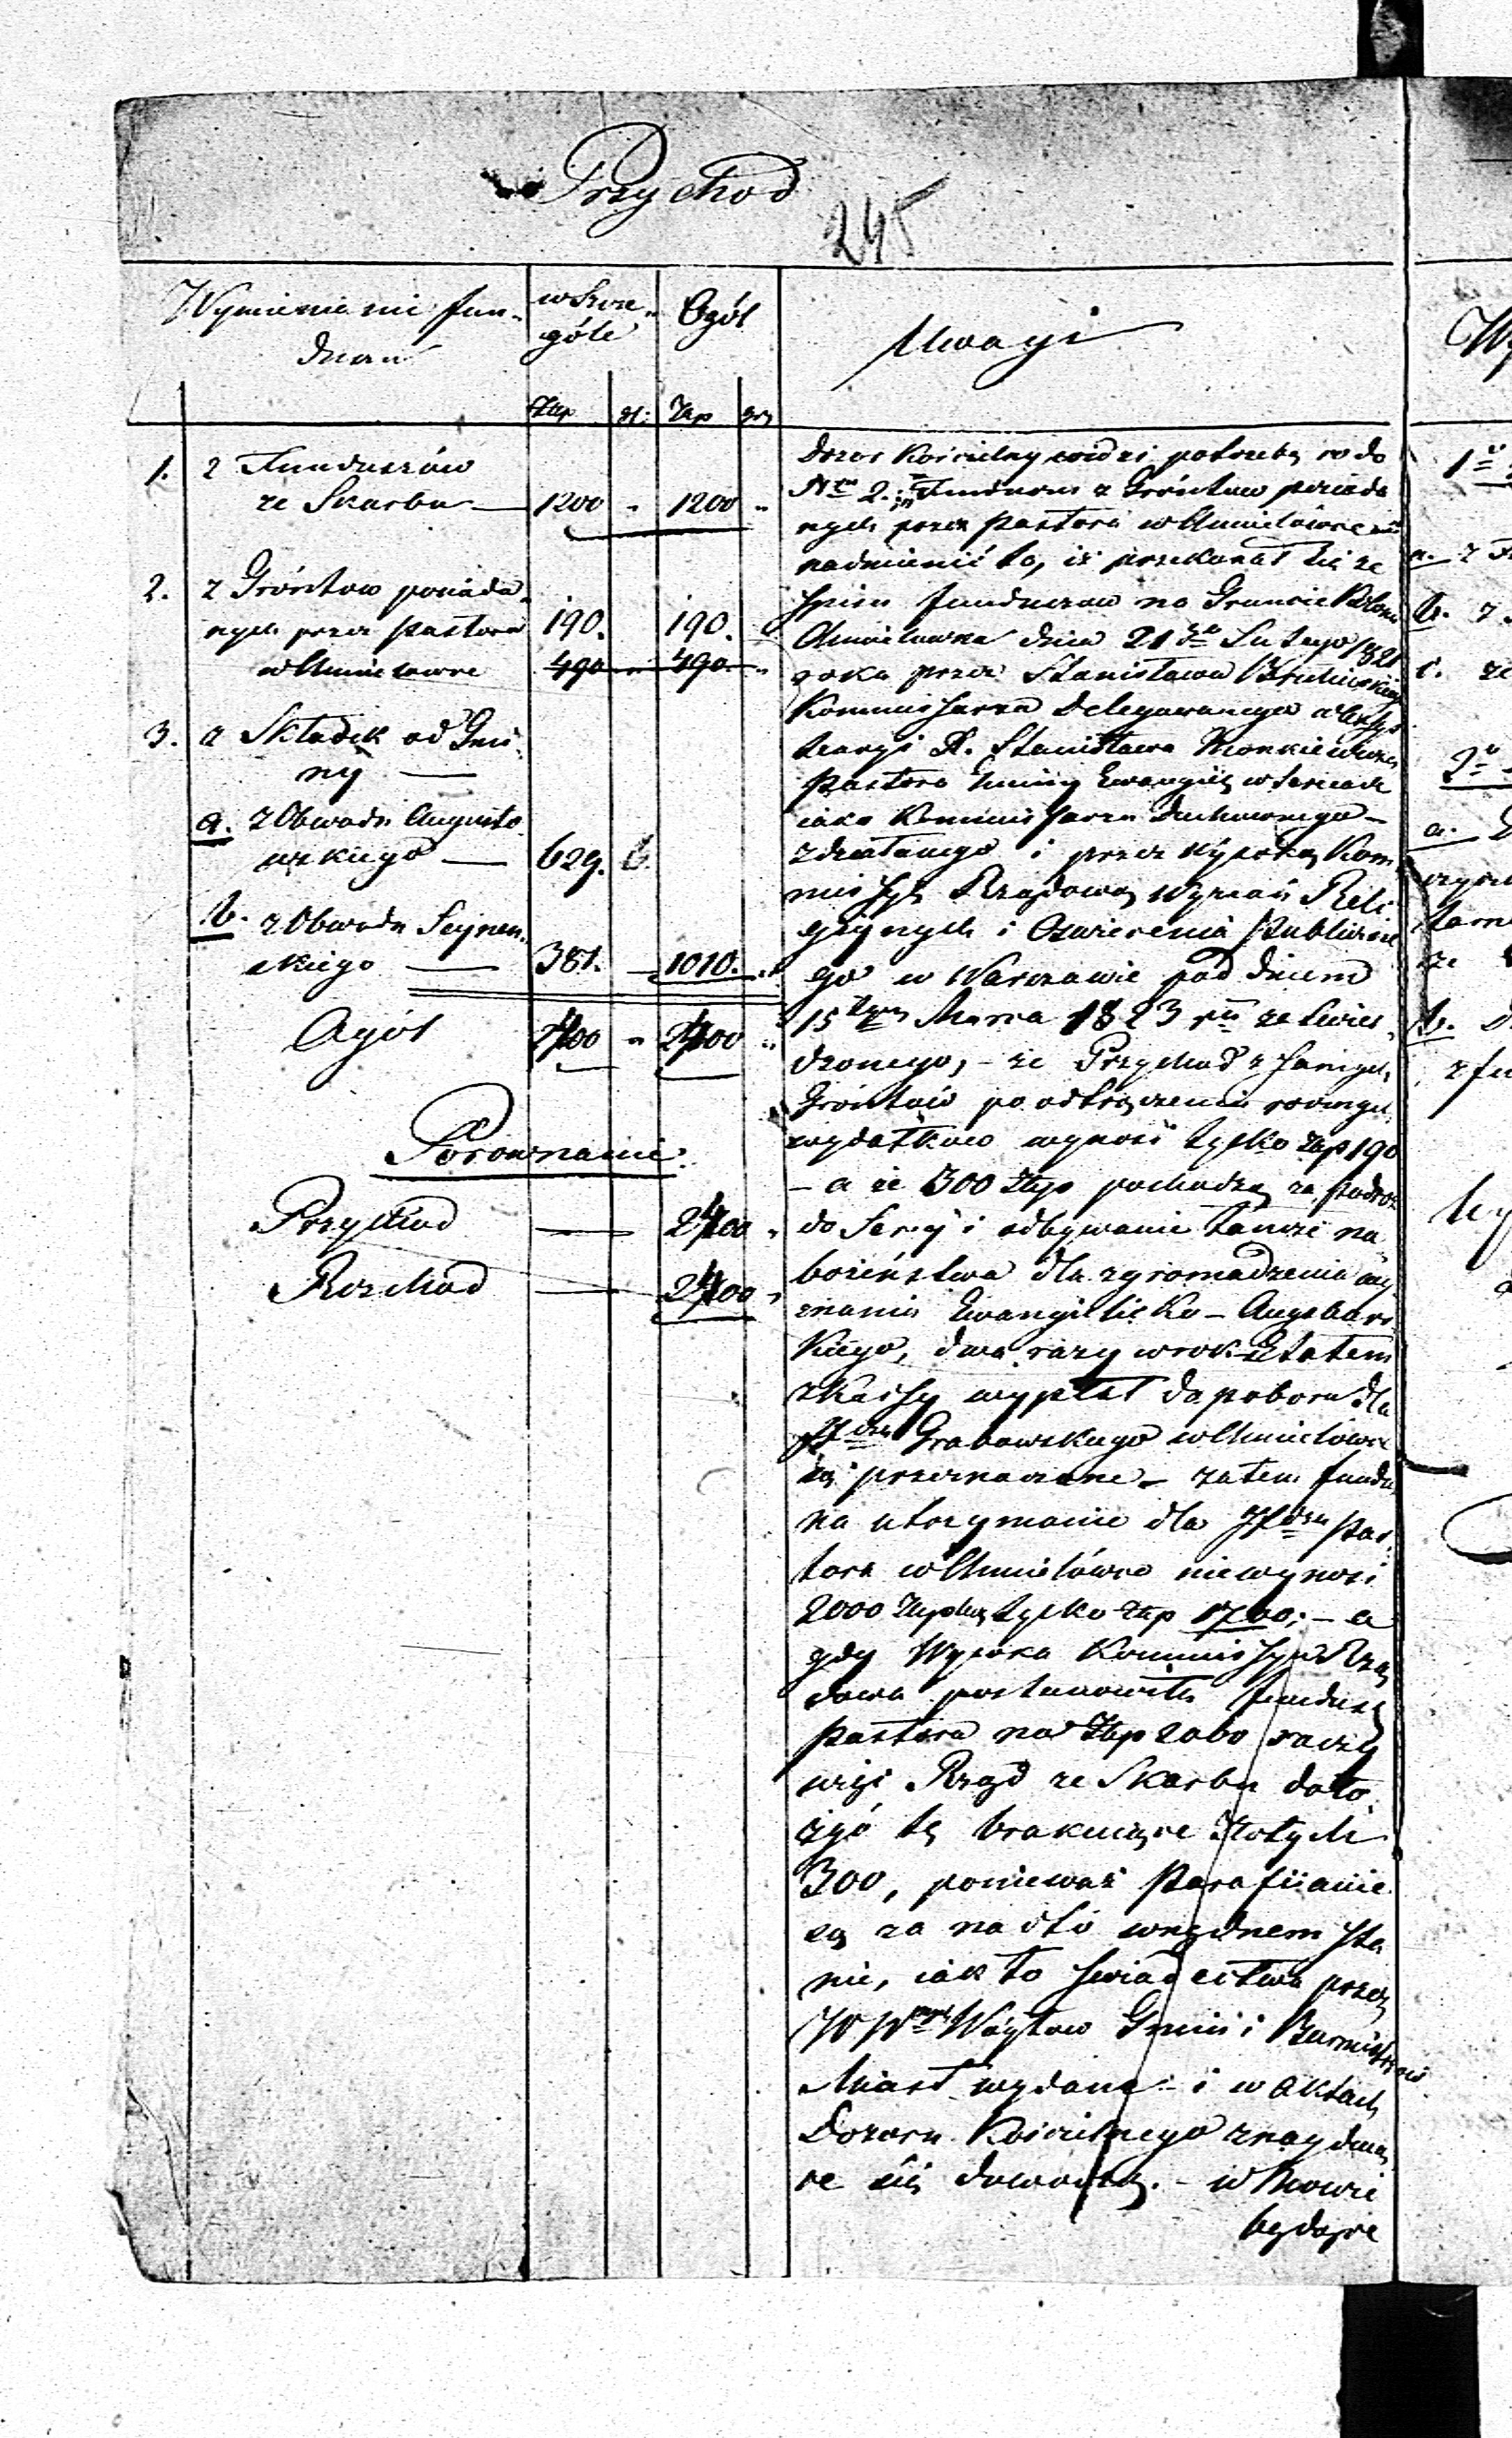 Przychod
245
Wymienienie fun-
duszu
w szcze-
góle
Ogół
Uwagi
Złtp gr: Złp gr
1. z Funduszów
ze Skarbu — 1200 " 1200 "
2. z Gróntow posiada-
nych przez Pastora 190. 190.
w Chmielowce 490 " 490. "
3. z Składek od Gmi-
ny —
a. z Obwodu Augusto-
wskiego — 629. 6.
b. z Obwodu Seynen-
skiego — 381. — 1010. "
Ogół 2400 " 2400 "
Porownanie.
Przychod — 2400 "
Rozchod — 2400 "
Dozor Koscielny widzi potrzebę co do
Nru 2. Fundusz z Gróntow posiada
nych przez Pastora w Chmielowce
nadmienić to, iż przekonał się ze
spisu funduszow na Gruncie
Chmielowka dnia 21 Lutego 1821
roku przez Stanisława
Kommissarza Delegowanego w
X. Stanisława
Pastora Gminy Ewangie: w Sereiach
iako Kommissarza Duchownego —
zdziałanego i przez Wysoką Kom
missyą Rządową Wyznań Reli
giynych i Oswiecenia Publiczne
go w Warszawie pod dniem
15 Marca 1823 zatwier-
dzonego, — że Przychod z samych
Gróntow po odtrąceniu
wydatkow wynosi tylko złtp 190
— a że 300 Złtp pochodzą za podroż
do Serey i odbywanie tamże na
bożeństwa dla zgromadzenia wy
znania Ewangielicko — Augsburs
kiego, dwa razy w rok Etatem
z Kassy wypłat do poboru dla
Grabowskiego w Chmielowce
są przeznaczone — zatem fundu
na utrzymanie dla Pas-
tora w Chmielówce niewynosi
2000 tylko złp 1700; — a
gdy Wysoka Kommissya Rzą
dowa postanowiła fundusz
Pastora na Złtp 2000 raczy
więc Rząd ze Skarbu doło-
żyć te brakuiące Złotych
300, ponieważ Parafiianie
są za nadto w nędznem sta
nie, iak to swiadectwa przez
Woytow Gmin i Burmistrzow
Miast wydane — i w aktach
Dozoru Koscielnego znayduią
ce się dowodzą. — w Mowie
będące